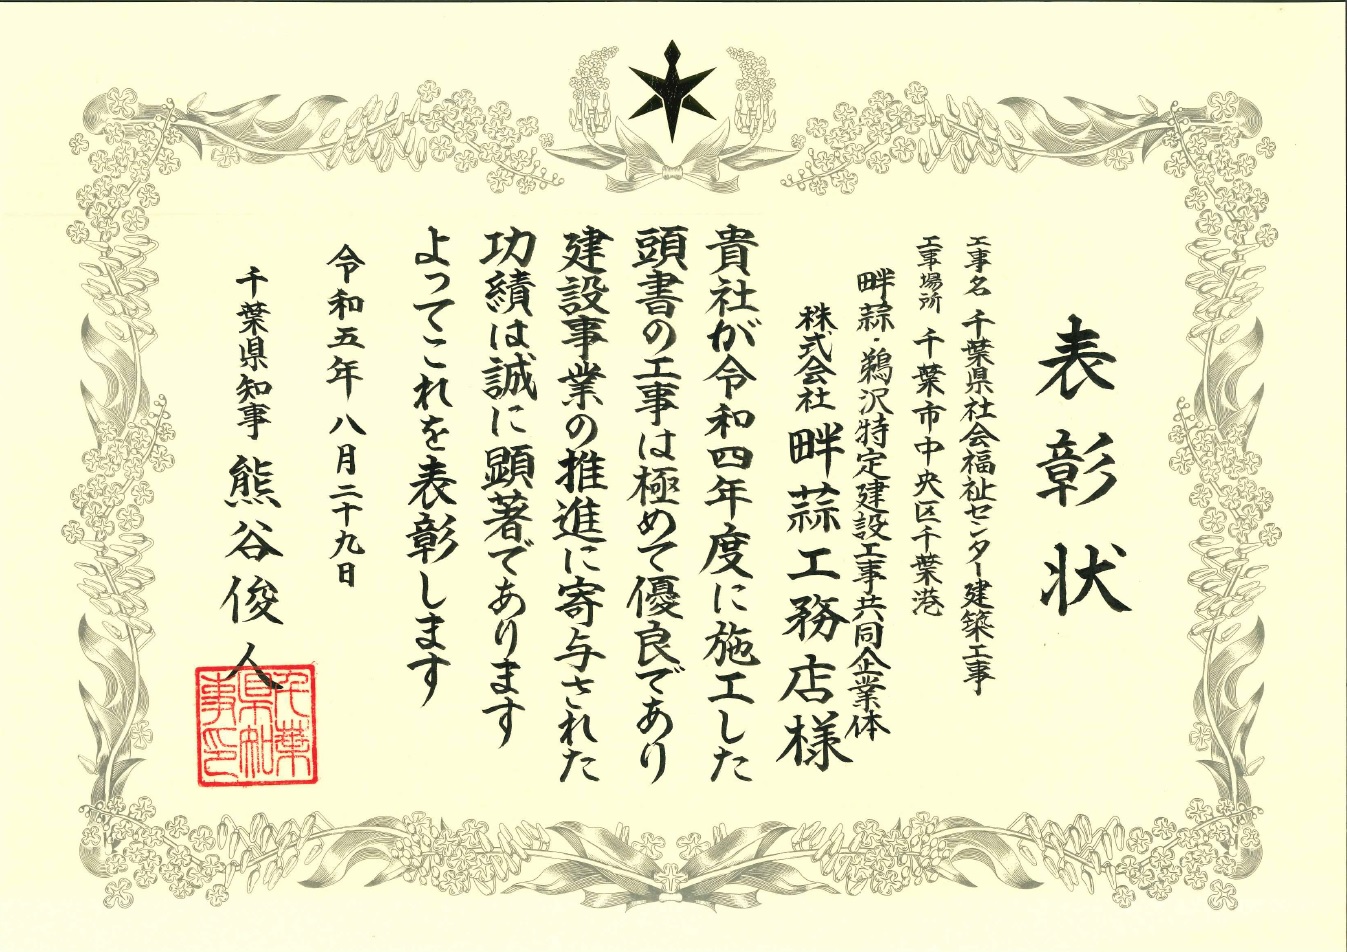 表彰状
工事名 千葉県社会福祉センター建築工事
工事場所 千葉市中央区千葉港
畔蒜・鵜沢特定建設工事共同企業体
株式会社 畔蒜工務店様
貴社が令和四年度に施工した
頭書の工事は極めて優良であり
建設事業の推進に寄与された
功績は誠に顕著であります
よってこれを表彰します
令和五年八月二十九日
千葉県知事 熊谷俊人
千葉
県知
事印